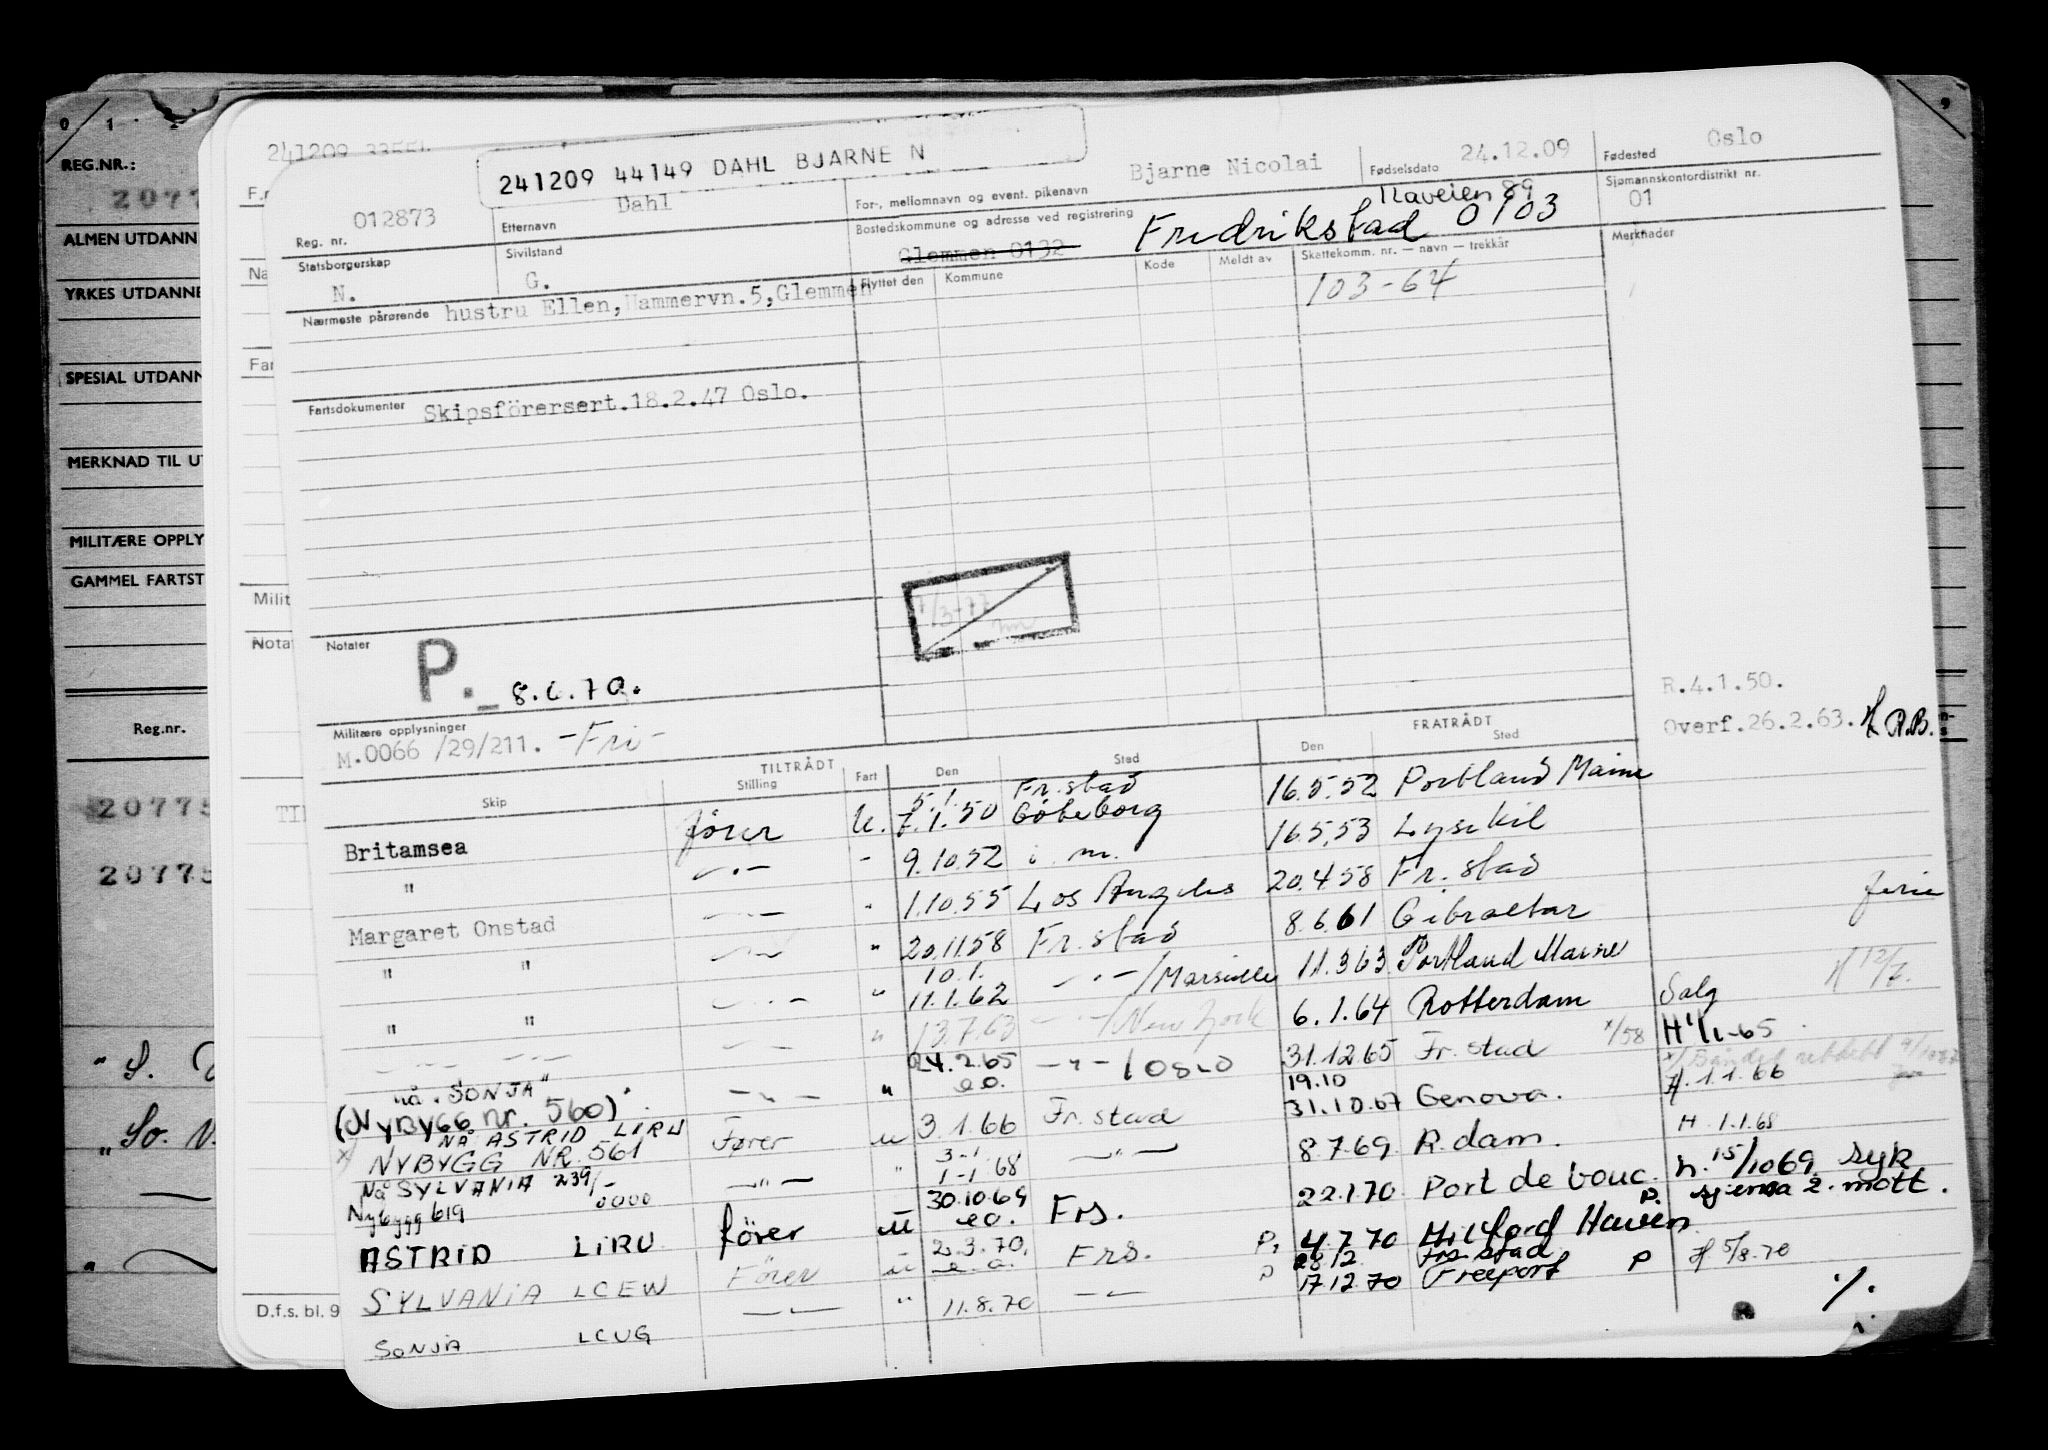 REG.NR.:
2077
ALMEN UTDANN
YRKES UTDANNE
SPESIAL UTDANN
MERKNAD TIL U
MILITÆRE OPPLY
GAMMEL FARTST
Reg.nr.
20775
20775
D.f.s. bl. 9
Milit
Notat
241209
241209 44149 DAHL BJARNE N
Reg. nr. 012873
Etternavn Dahl
For-, mellomnavn og event. pikenavn Bjarne Nicolai
Fødselsdato 24.12.09
Fødested Oslo
Statsborgerskap N.
Sivilstand G.
Bostedskommune og adresse ved registrering Glemmen 0132 Fredrikstad 0103
Raveien 89
Sjømannskontordistrikt nr. 01
Nærmeste pårørende hustru Ellen, Hammervn.5, Glemmen
Flyttet den Kommune Kode Meldt av Skattekomm. nr. — navn — trekkår Merknader
103-64
Fartsdokumenter Skipsförersert.18.2.47 Oslo.
Notater
P. 8.6.70.
Militære opplysninger
M.0066 /29/211. -Fri-
R.4.1.50.
Overf.26.2.63.
TILTRÅDT FRATRÅDT
Skip Stilling Fart Den Sted Den Sted
Britamsea fører U. 5.1. 7.1.50 Fr.stad Gøteborg 16.5.52 Portland Maine
" 9.10.52 i. m. 16.5.53 Lysekil
Margaret Onstad 1.10.55 Los Angeles 20.4.58 Fr.stad
" " 20.11.58 Fr.stad 8.6.61 Gibraltar ferie
" " 10.1. 11.1.62 /Marseille 11.3.63 Portland Maine
13.7.63 /New York 6.1.64 Rotterdam Salg
nå "SONJA"
(Nybygg nr. 560) 24.2.65 e.o. /Oslo 31.12.65 Fr.stad H 1/1-65
NÅ ASTRID LIRU
x/ NYBYGG NR. 561 Fører u 3.1.66 Fr.stad 19.10 31.10.67 Genova. H. 1.1.66
Nå SYLVANIA 239/-
Nybygg 619 0000 " 3-1 1-1-68 8.7.69 R.dam. H. 1.1.68
ASTRID LIRU fører u 30.10.69 e.o. Frs. 22.1.70 Port de bouc. h. 15/10 69. syk
SYLVANIA LCEW Fører u 2.3.70. e.o. Frs. P. 4.7.70 Milford Haven P.
SONJA LCUG " 11.8.70 P 28.12 17.12.70 Frs.stad Freeport P H 5/8.70